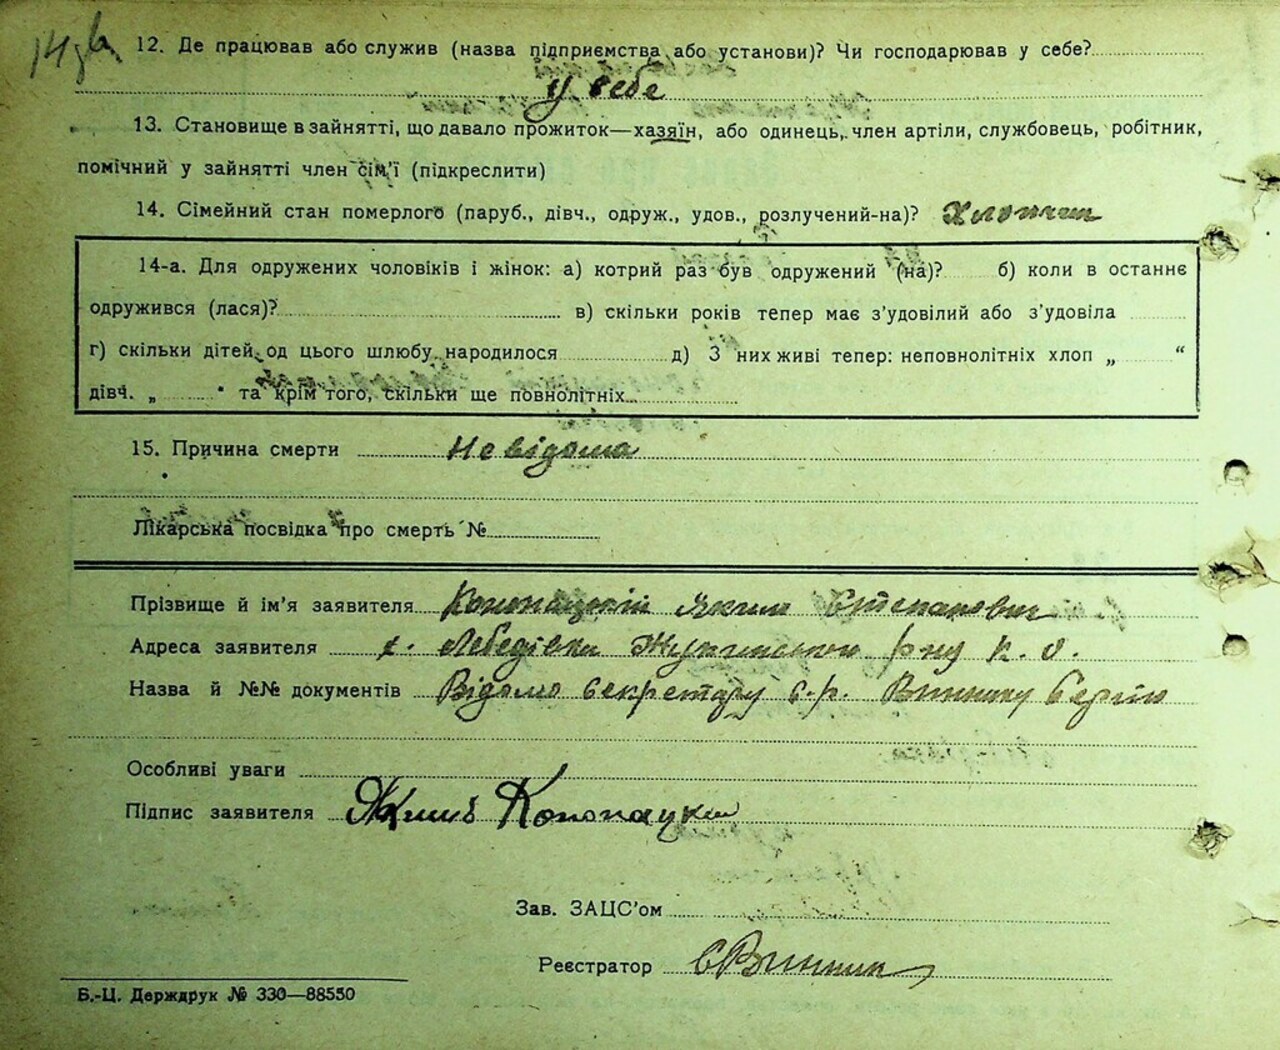 14 зв.
12. Де працював або служив (назва підприємства або установи)? Чи господарював у себе?
у себе
13. Становище в зайнятті, що давало прожиток—хазяїн, або одинець, член артілі, службовець, робітник,
помічний у зайнятті член сім'ї (підкреслити)
14. Сімейний стан померлого (паруб., дівч., одруж., удов., розлучений-на)?
14-а. Для одружених чоловіків і жінок: а) котрий раз був одружений (на)? б) коли в останнє
одружився (лася)? в) скільки років тепер має з'удовілий або з'удовіла
г) скільки дітей од цього шлюбу народилося д) З них живі тепер: неповнолітніх хлоп „ “
дівч. „ “ та крім того, скільки ще повнолітніх
15. Причина смерти Не відома
Лікарська посвідка про смерть №
Прізвище й ім'я заявителя Конопацкій Яким Степанович
Адреса заявителя с. Лебедівка р-ну К. О.
Назва й №№ документів Відомо секретару с.р. Виннику Сергію
Особливі уваги
Підпис заявителя Яким Конопацкий
Зав. ЗАЦС'ом
Реєстратор СВинник
Б.-Ц. Держдрук № 330—88550